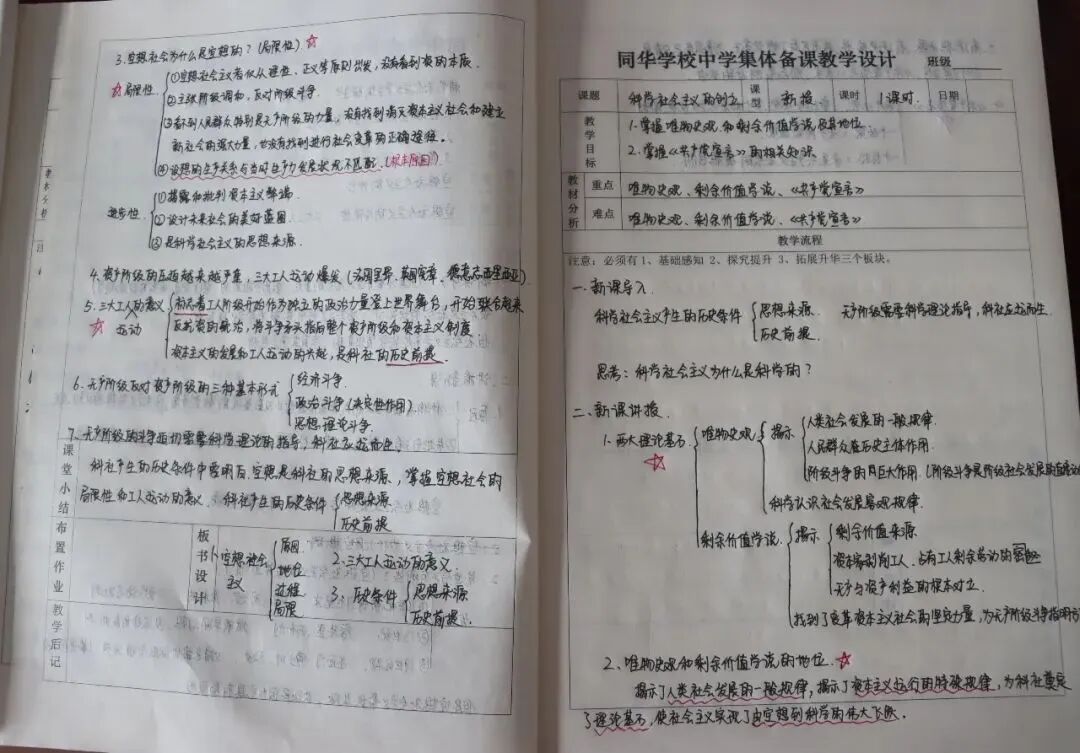 3.空想社会为什么是空想的？(局限性)☆
☆局限性
①空想社会主义者仅从理性、正义等原则出发，没有看到资的本质.
②主张阶级调和，反对阶级斗争.
③看不到人民群众特别是无产阶级的力量，没有找到消灭资本主义社会和建立
新社会的强大力量，也没有找到进行社会变革的正确途径.
④设想的生产关系与当时生产力发展状况不匹配.(根本原因)
进步性
①揭露和批判资本主义弊端.
②设计未来社会的美好蓝图
③是科学社会主义的思想来源.
4.资产阶级的压迫越来越严重，三大工人运动爆发(法国里昂、英国宪章、德意志西里西亚)
5.三大工人的意义
☆ 运动
标志着工人阶级开始作为独立的政治力量登上世界舞台，开始联合起来
反抗资的统治，将斗争矛头指向整个资产阶级和资本主义制度
资本主义的发展和工人运动的兴起，是科社的历史前提.
6.无产阶级反对资产阶级的三种基本形式
经济斗争.
政治斗争(决定性作用)
思想理论斗争.
7.无产阶级的斗争迫切需要科学理论的指导，科社应运而生.
课堂小结
科社产生的历史条件中要明后，空想是科社的思想来源，掌握空想社会的
局限性和工人运动的意义. 科社产生的历史条件
思想来源
历史前提
布置作业
板书设计
1.空想社会主义
原因.
地位.
过程.
局限.
2.三大工人运动的意义.
3.历史条件
思想来源
历史前提.
教学后记
同华学校中学集体备课教学设计 班级
课题 科学社会主义的创立 课型 新授 课时 1课时. 日期
教学目标
1.掌握唯物史观和剩余价值学说及其地位.
2.掌握《共产党宣言》的相关知识
教材分析
重点 唯物史观、剩余价值学说、《共产党宣言》
难点 唯物史观、剩余价值学说、《共产党宣言》
教学流程
注意：必须有 1、基础感知 2、探究提升 3、拓展升华三个板块。
一.新课导入
科学社会主义产生的历史条件
思想来源.
历史前提.
无产阶级需要科学理论指导，科社应运而生.
思考：科学社会主义为什么是科学的？
二.新课讲授.
1.两大理论基石
☆
唯物史观
揭示
人类社会发展的一般规律.
人民群众在历史主体作用.
阶级斗争的巨大作用.(阶级斗争是阶级社会发展的直接动
科学认识社会发展客观规律.
剩余价值学说.
揭示
剩余价值来源
资本家剥削工人、占有工人剩余劳动的
无产与资产利益的根本对立.
找到了变革资本主义社会的坚定力量，为无产阶级斗争指明方
2、唯物史观和剩余价值学说的地位. ☆
揭示了人类社会发展的一般规律，揭示了资本主义运行的特殊规律，为科社奠定
了理论基石，使社会主义实现了由空想到科学的伟大飞跃.